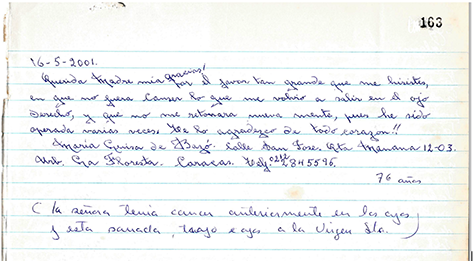 163
16-5-2001.
Querida Madre mia gracias! por el favor tan grande que me hicistes,
en que no fuera Cancer lo que me volvió a salir en el ojo
derecho, y que no me retornara nueva mente, pues he sido
operada varias veces. Te lo agradezco de todo corazon!!
Maria Luisa de Bazó. Calle San Jose. Qta Menana 12-03.
Urb. La Floresta. Caracas. Telf. 0212 2845596.
76 años
(la señora tenia cancer anteriormente en los ojos
y esta sanada, trajo ojos a la Virgen Sta.)